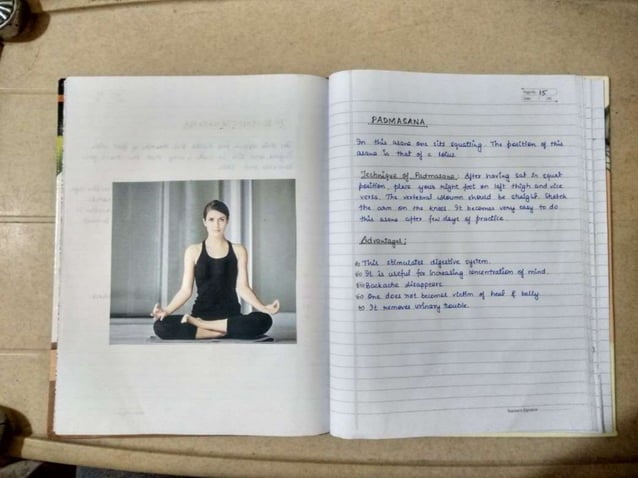 Page No. 15
Date
PADMASANA
In this asana one sits squatting. The position of this
asana is that of a lotus
Technique of Padmasana: After having sat in squat
position, place your right foot on left thigh and vice
versa. The vertebral coloumn should be straight. Stretch
the arm on the knees. It becomes very easy to do
this asana after few days of practice
Advantages:
i) This stimulates digestive system.
ii) It is useful for increasing concentration of mind.
iii) Backache disappears
iv) One does not becomes victim of heaf & belly
v) It removes urinary trouble.
Teacher's Signature